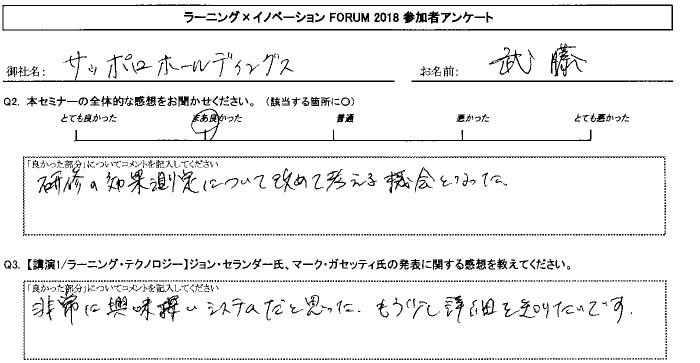 ラーニング×イノベーション FORUM 2018 参加者アンケート
御社名： サッポロホールディングス お名前： 武藤
Q2. 本セミナーの全体的な感想をお聞かせください。（該当する箇所に○）
とても良かった まあ良かった 普通 悪かった とても悪かった
「良かった部分」についてコメントを記入してください
研修の効果測定について改めて考える機会となった。
Q3. 【講演1/ラーニング・テクノロジー】ジョン・セランダー氏、マーク・ガセッティ氏の発表に関する感想を教えてください。
「良かった部分」についてコメントを記入してください
非常に興味深いシステムだと思った。もう少し詳細を知りたいです。